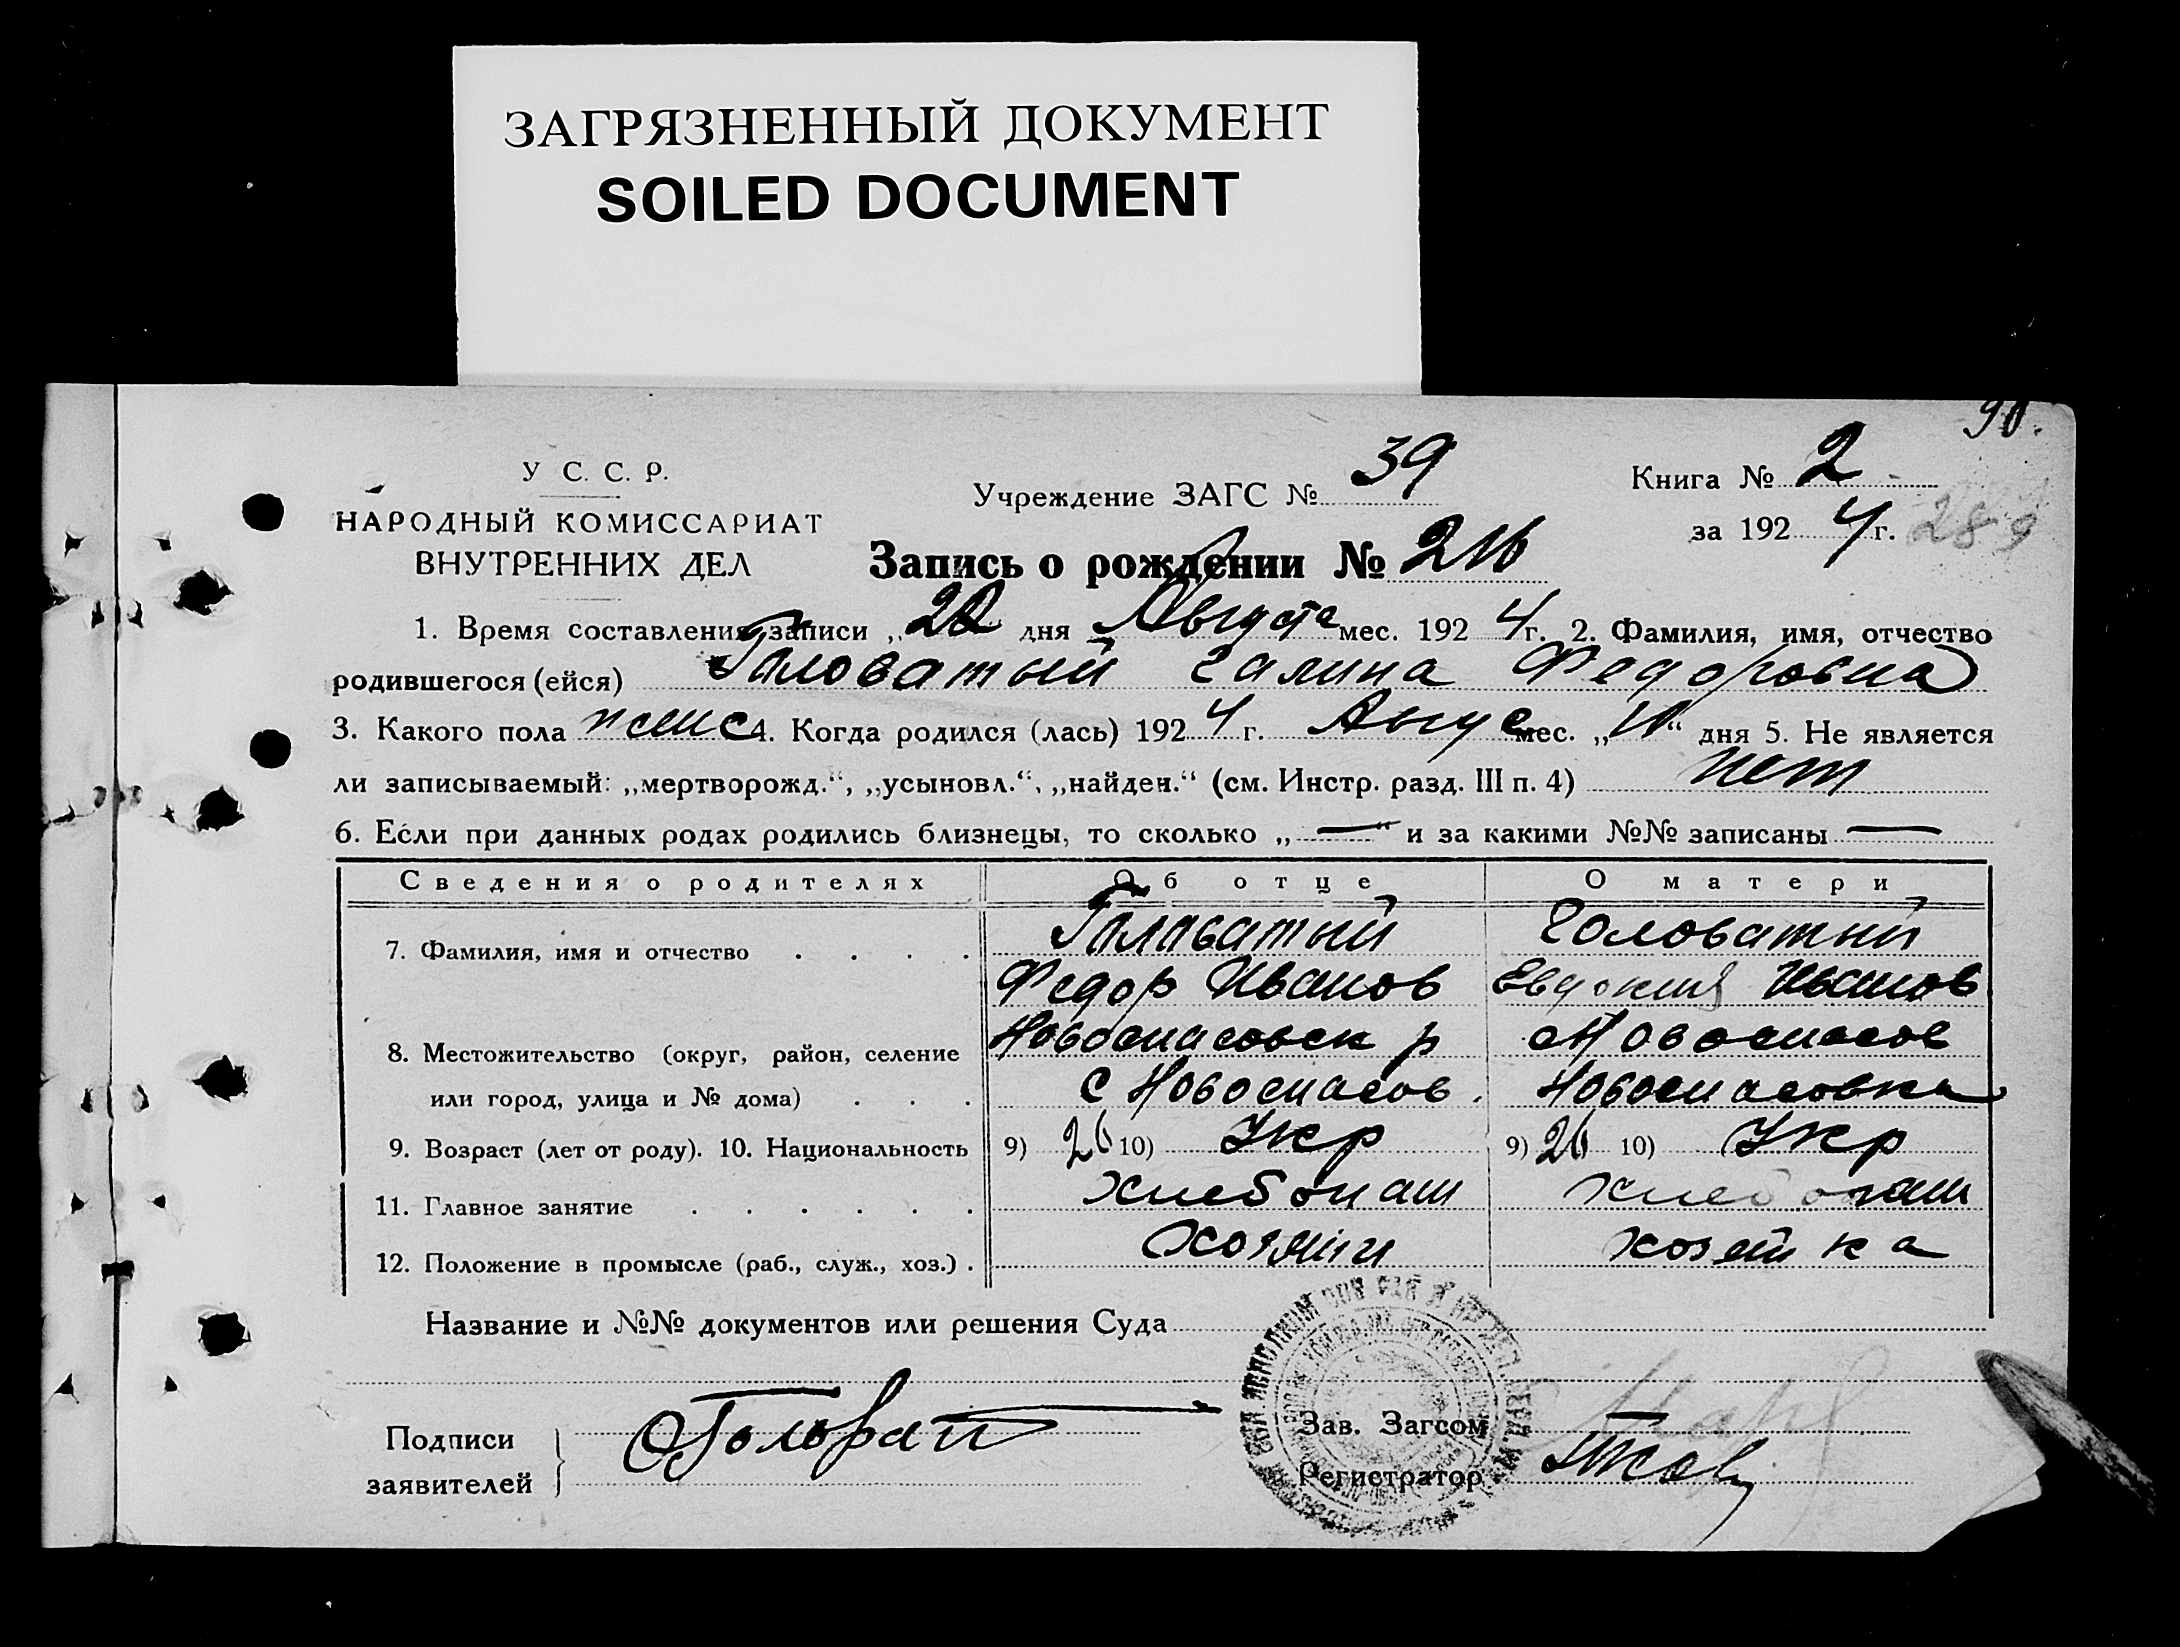 ЗАГРЯЗНЕННЫЙ ДОКУМЕНТ
SOILED DOCUMENT
90.
У С. С. Р.
НАРОДНЫЙ КОМИССАРИАТ
ВНУТРЕННИХ ДЕЛ
Учреждение ЗАГС № 39
Книга № 2
за 1924 г. 289
Запись о рождении № 216
1. Время составления записи „20 дня Августа мес. 1924 г. 2. Фамилия, имя, отчество
родившегося (ейся) Головатый Галина Федоровна
3. Какого пола женс 4. Когда родился (лась) 1924 г. Авгус мес. „10“ дня 5. Не является
ли записываемый: „мертворожд.“, „усыновл.“, „найден.“ (см. Инстр. разд. III п. 4) нет
6. Если при данных родах родились близнецы, то сколько „—“ и за какими №№ записаны —
Сведения о родителях Об отце О матери
7. Фамилия, имя и отчество . . . . Головатый Головатый
Федор Иванов Евдокия Иванов
8. Местожительство (округ, район, селение Новоспасовск р Новоспасов
или город, улица и № дома) . . . С Новоспасов. Новоспасовка
9. Возраст (лет от роду). 10. Национальность 9) 26 10) Укр 9) 26 10) Укр
11. Главное занятие . . . . . . Хлебопаш Хлебопаш
12. Положение в промысле (раб., служ., хоз.) . Хозяин хозяйка
Название и №№ документов или решения Суда
Подписи
заявителей
Головат
Зав. Загсом
Регистратор